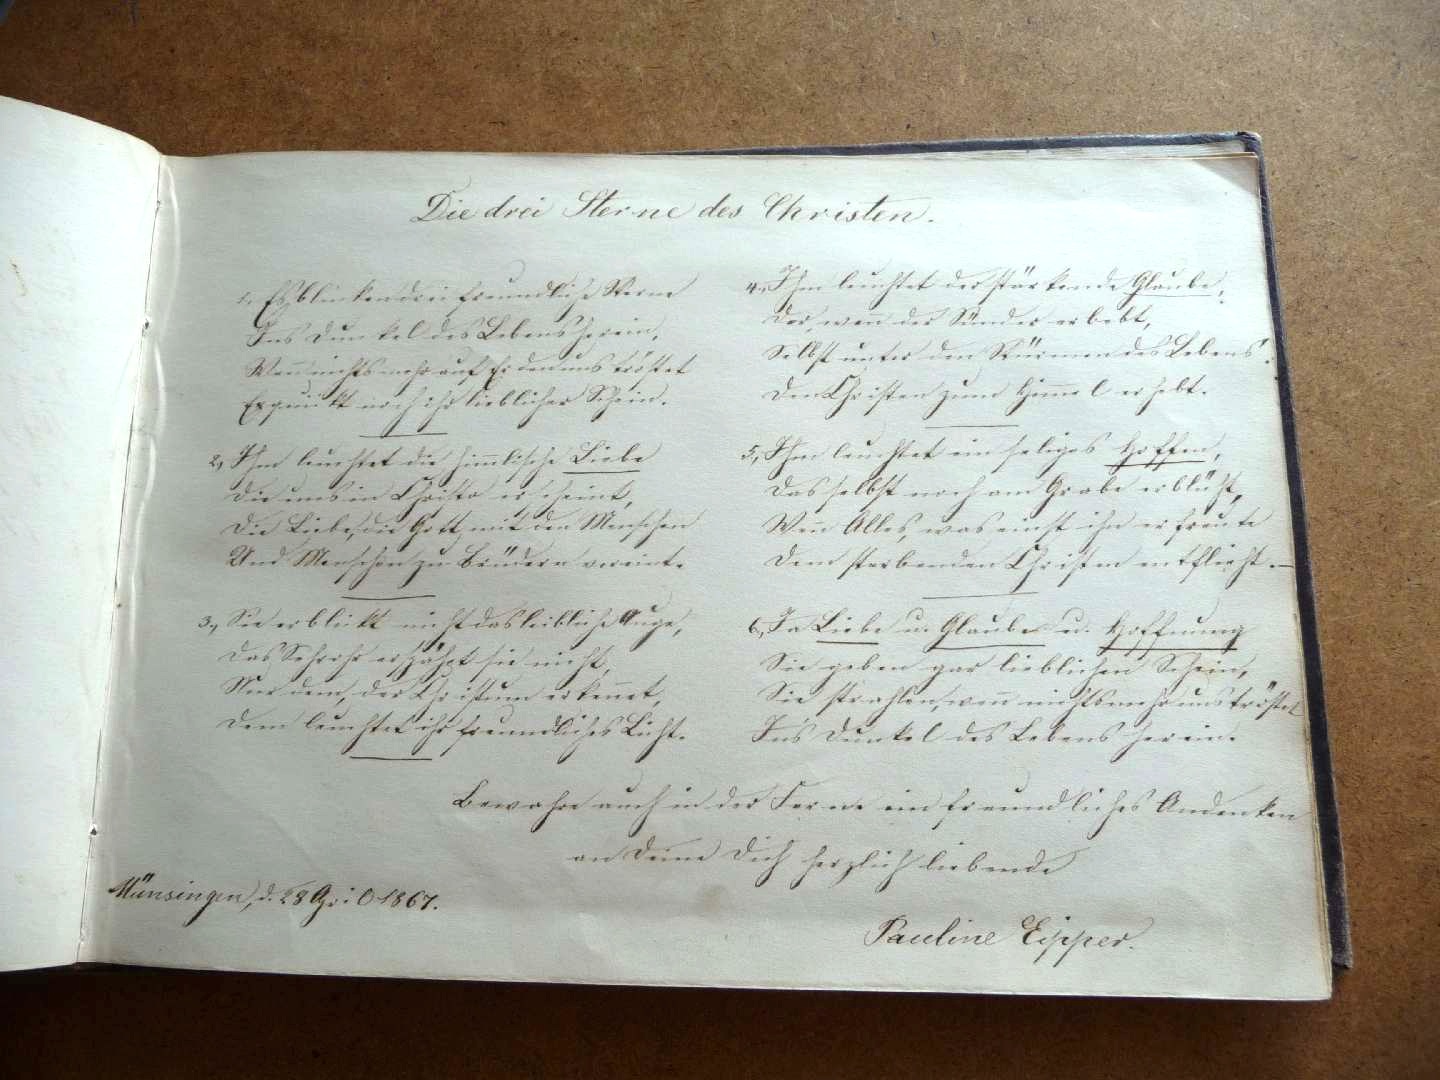 Die drei Sterne des Christen.
1., Es blinken drei freundliche Sterne
Ins Dunkel des Lebens herein,
Weñ nichts mehr auf Erden uns tröstet
Erquikt noch ihr lieblicher Schein.
2., Ihm leuchtet die him̄lische Liebe
Die uns in Christo erscheint,
Die Liebe, die Gott mit den Menschen
Und Menschen zu Brüdern vereint.
3., Sie erblikt nicht das leibliche Auge,
Das Sehrohr erspäht sie nicht,
Nur dem, der Christum erkeñet,
Dem leuchtet ihr freundliches Licht.
4., Ihm leuchtet der stärkende Glaube,
Der, weñ der Sünder erbebt,
Selbst unter den Stürmen des Lebens
Den Christen zum Him̄el erhebt.
5., Ihm leuchtet ein seliges Hoffen,
Das selbst noch am Grabe erblüht,
Weñ Alles, was einst ihn erfreute
Dem sterbenden Christen entflieht. —
6., Ja Liebe u. Glaube u. Hoffnung
Sie geben gar lieblichen Schein,
Sie strahlen, weñ nichts mehr uns tröstet
In's Dunkel des Lebens herein.
Bewahre auch in der Ferne ein freundliches Andenken
an Deine Dich herzlich liebende
Münsingen, d. 28 April 1867.
Pauline Eipper.